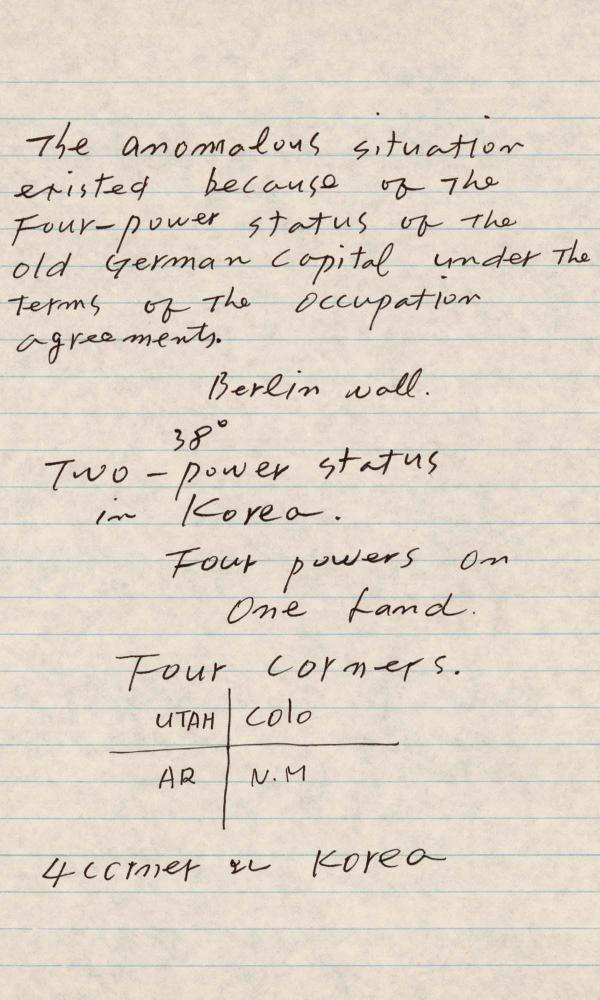 The anomalous situation
existed because of the
Four-power status of the
old German Capital under the
terms of the occupation
agreements.
Berlin wall.
38°
Two-power status
in Korea.
Four powers on
One Land.
Four corners.
UTAH Colo
AR N.M
4 corner in Korea